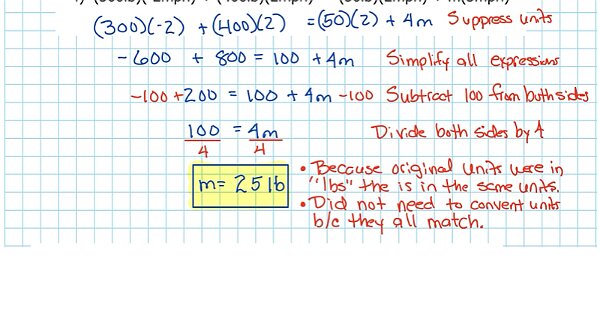 (300)(-2) + (400)(2) = (50)(2) + 4m Suppress units
-600 + 800 = 100 + 4m Simplify all expressions
-100 + 200 = 100 + 4m -100 Subtract 100 from both sides
100 = 4m Divide both sides by 4
4 4
m = 25 lb
• Because original units were in
"lbs" the is in the same units.
• Did not need to convent units
b/c they all match.